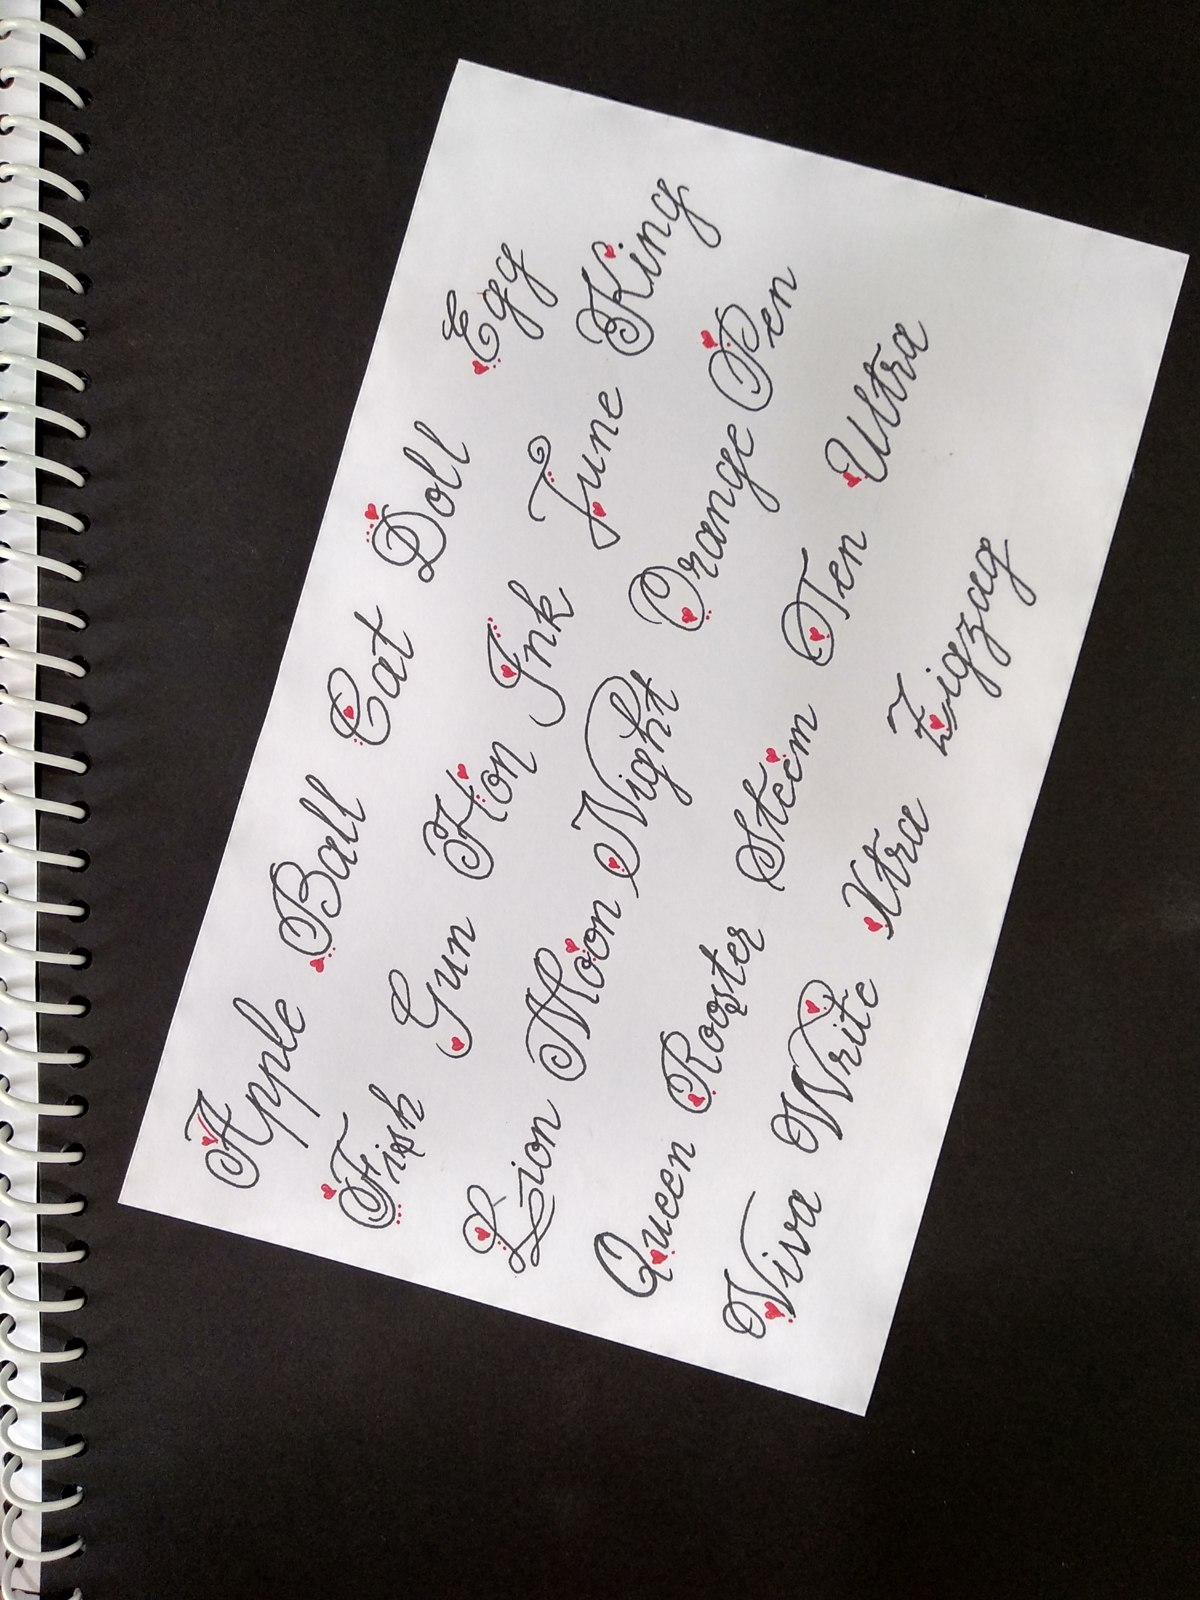 Apple Ball Cat Doll Egg
Fish Gun Hon Ink June King
Lion Moon Night Orange Pen
Queen Rooster Steem Ten Ultra
Viva Write Xtra Zigzag